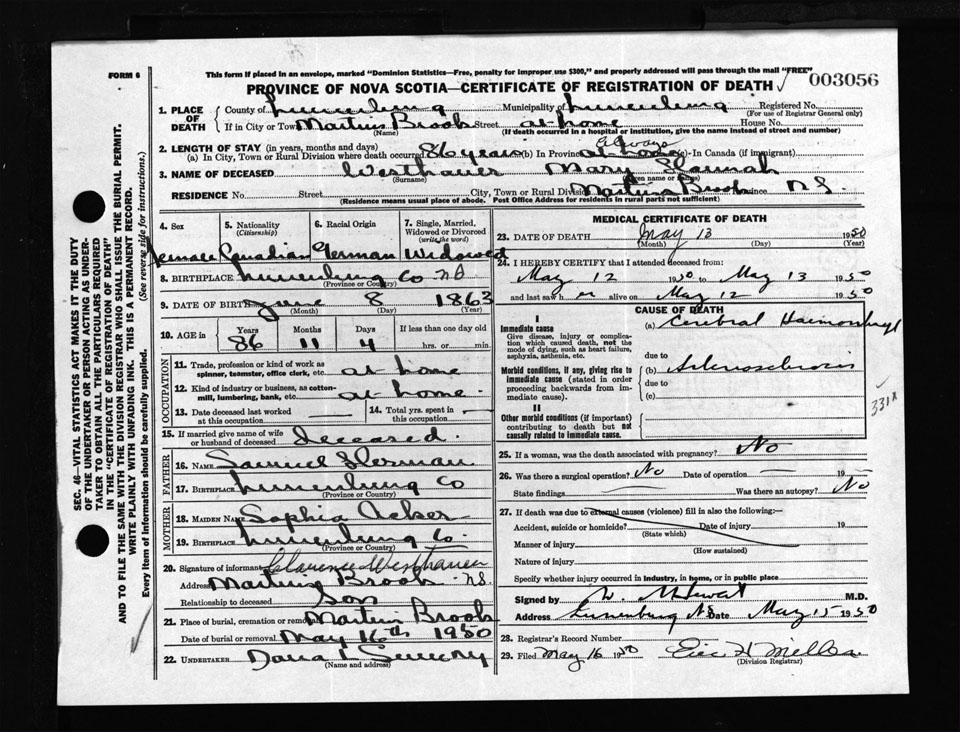 FORM 6
This form if placed in an envelope, marked "Dominion Statistics—Free, penalty for improper use $300," and properly addressed will pass through the mail "FREE"
003056
PROVINCE OF NOVA SCOTIA—CERTIFICATE OF REGISTRATION OF DEATH
1. PLACE OF DEATH
County of Lunenburg Municipality of Lunenburg Registered No.
(For use of Registrar General only)
If in City or Town Martins Brook Street at home House No.
(Name) (If death occurred in a hospital or institution, give the name instead of street and number)
2. LENGTH OF STAY (in years, months and days)
(a) In City, Town or Rural Division where death occurred 86 years (b) In Province always at home (c)- In Canada (if immigrant)
3. NAME OF DECEASED Westhaver Mary Hannah
(Surname) (Given name or names)
RESIDENCE No. Street City, Town or Rural Division Martins Brook Province N S.
(Residence means usual place of abode. Post Office Address for residents in rural parts not sufficient)
4. Sex
5. Nationality (Citizenship)
6. Racial Origin
7. Single, Married, Widowed or Divorced (write the word)
Female Canadian German Widowed
8. BIRTHPLACE Lunenburg Co N S
(Province or Country)
9. DATE OF BIRTH June 8 1863
(Month) (Day) (Year)
10. AGE in Years Months Days If less than one day old
86 11 4 hrs. or min.
OCCUPATION
11. Trade, profession or kind of work as spinner, teamster, office clerk, etc. at home
12. Kind of industry or business, as cotton-mill, lumbering, bank, etc. at home.
13. Date deceased last worked at this occupation
14. Total yrs. spent in this occupation
15. If married give name of wife or husband of deceased deceased.
FATHER
16. NAME Samuel Herman
17. BIRTHPLACE Lunenburg Co
(Province or Country)
MOTHER
18. MAIDEN NAME Sophia Acker
19. BIRTHPLACE Lunenburg Co.
(Province or Country)
20. Signature of informant Clarence Westhaver
Address Martins Brook N.S.
Relationship to deceased Son
21. Place of burial, cremation or removal Martins Brook
Date of burial or removal May 16th 1950
22. UNDERTAKER Dana L Sweeny
(Name and address)
MEDICAL CERTIFICATE OF DEATH
23. DATE OF DEATH May 13 1950
(Month) (Day) (Year)
24. I HEREBY CERTIFY that I attended deceased from
May 12 1950 to May 13 1950
and last saw h er alive on May 12 1950
CAUSE OF DEATH
I
Immediate cause
Give disease, injury or complication which caused death, not the mode of dying, such as heart failure, asphyxia, asthenia, etc.
(a) Cerebral Haemorrhage
due to
Morbid conditions, if any, giving rise to immediate cause (stated in order proceeding backwards from immediate cause).
(b) Arteriosclerosis
due to
(c)
331x
II
Other morbid conditions (if important) contributing to death but not causally related to immediate cause.
25. If a woman, was the death associated with pregnancy? No
26. Was there a surgical operation? No Date of operation 19
State findings Was there an autopsy? No
27. If death was due to external causes (violence) fill in also the following:—
Accident, suicide or homicide? Date of injury 19
(State which)
Manner of injury
(How sustained)
Nature of injury
Specify whether injury occurred in industry, in home, or in public place
Signed by M.D.
Address Lunenburg NS Date May 15 1950
28. Registrar's Record Number
29. Filed May 16 1950 Eric H Miller
(Division Registrar)
SEC. 46—VITAL STATISTICS ACT MAKES IT THE DUTY
OF THE UNDERTAKER OR PERSON ACTING AS UNDER-
TAKER TO OBTAIN ALL THE PARTICULARS REQUIRED
IN THE "CERTIFICATE OF REGISTRATION OF DEATH"
AND TO FILE THE SAME WITH THE DIVISION REGISTRAR WHO SHALL ISSUE THE BURIAL PERMIT.
WRITE PLAINLY WITH UNFADING INK. THIS IS A PERMANENT RECORD.
Every item of information should be carefully supplied. (See reverse side for instructions.)